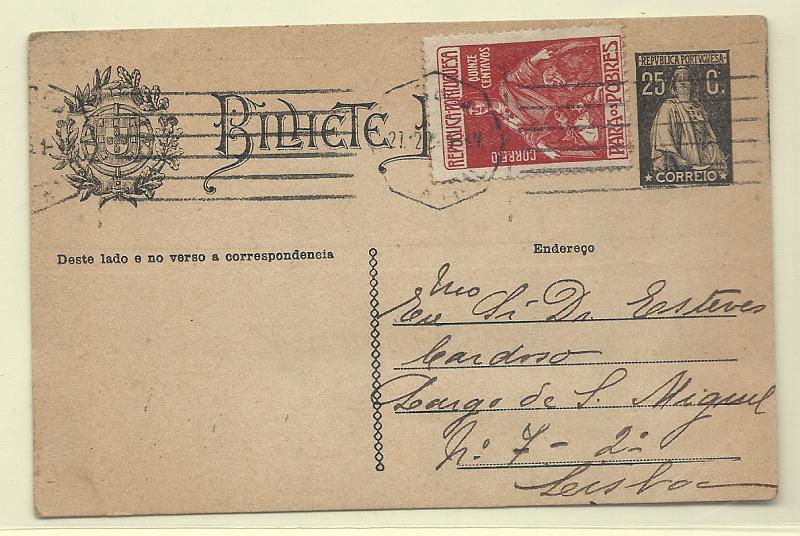 BILHETE
REPUBLICA PORTUGUESA
QUINZE
CENTAVOS
CORREIO
PARA OS POBRES
REPUBLICA PORTUGUESA
25 C.
CORREIO
Deste lado e no verso a correspondencia
Endereço
mo
Ex Sr. Dr. Esteves
Cardoso
Largo de S. Miguel
Nº 7 - 2º
Lisboa